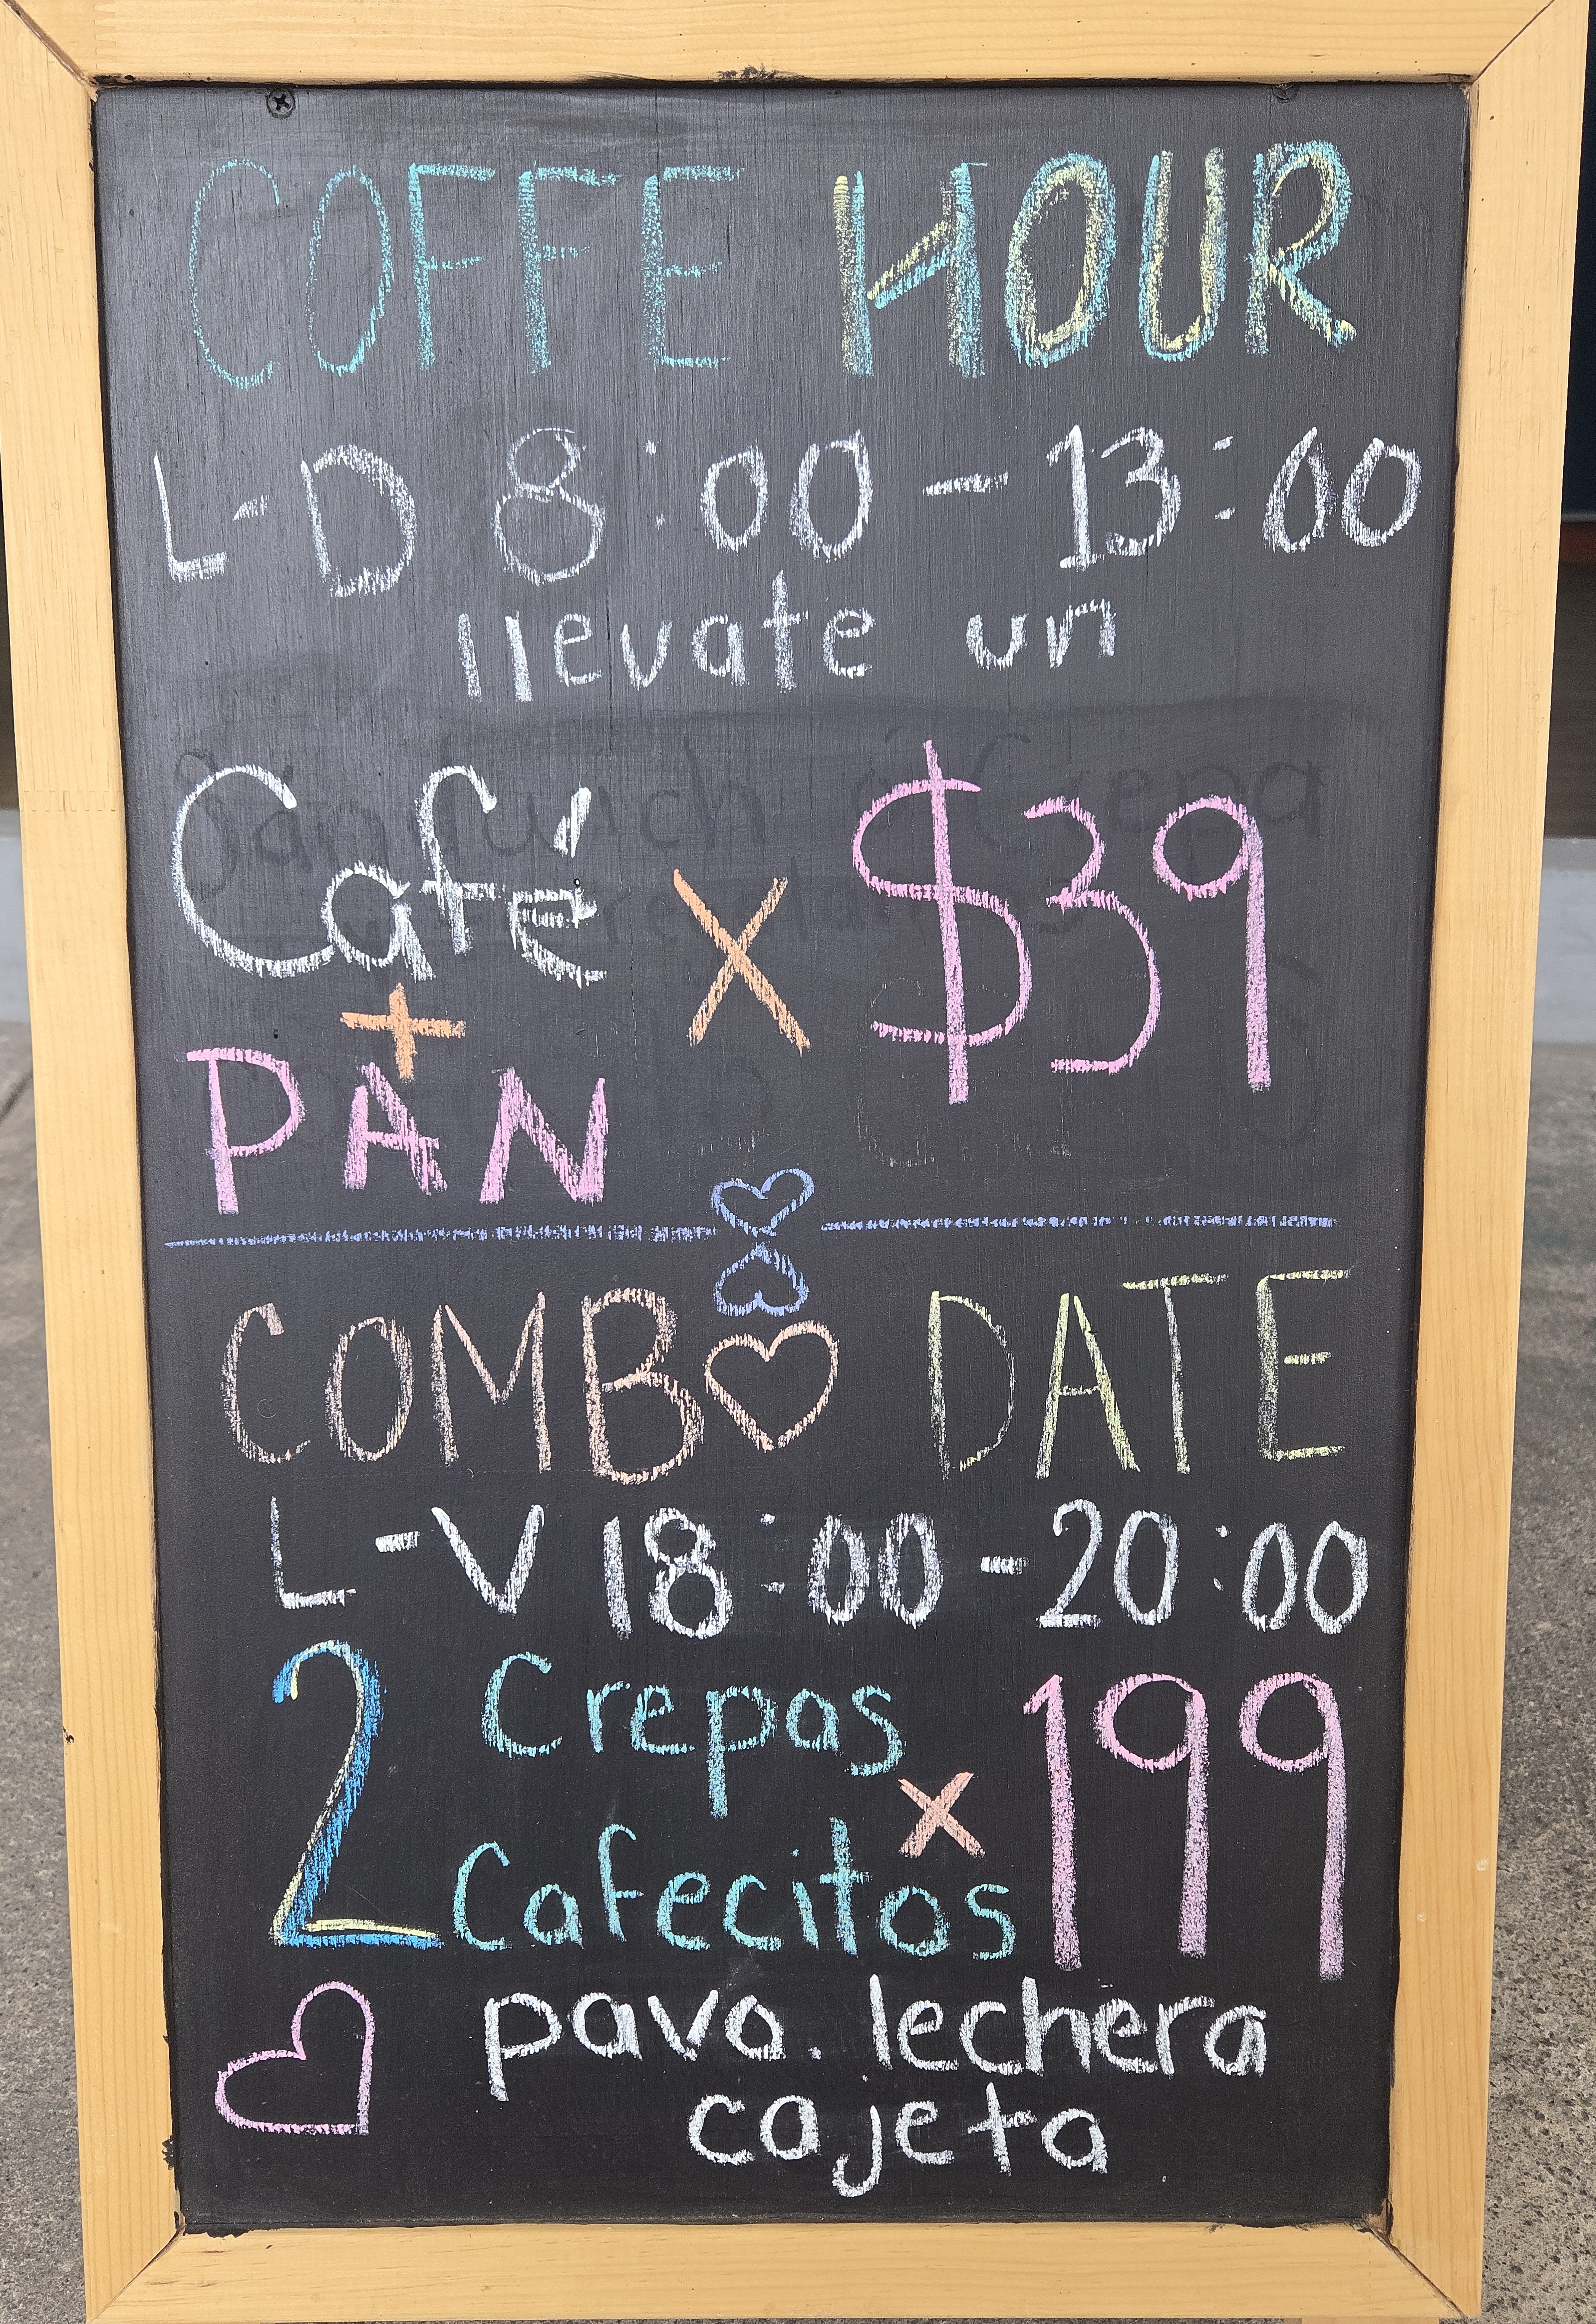 COFFE HOUR
L-D 8:00 - 13:00
llevate un
Café x $39
+
PAN
COMB♡ DATE
L-V 18:00 - 20:00
2 Crepas
Cafecitos x 199
pavo. lechera
cajeta